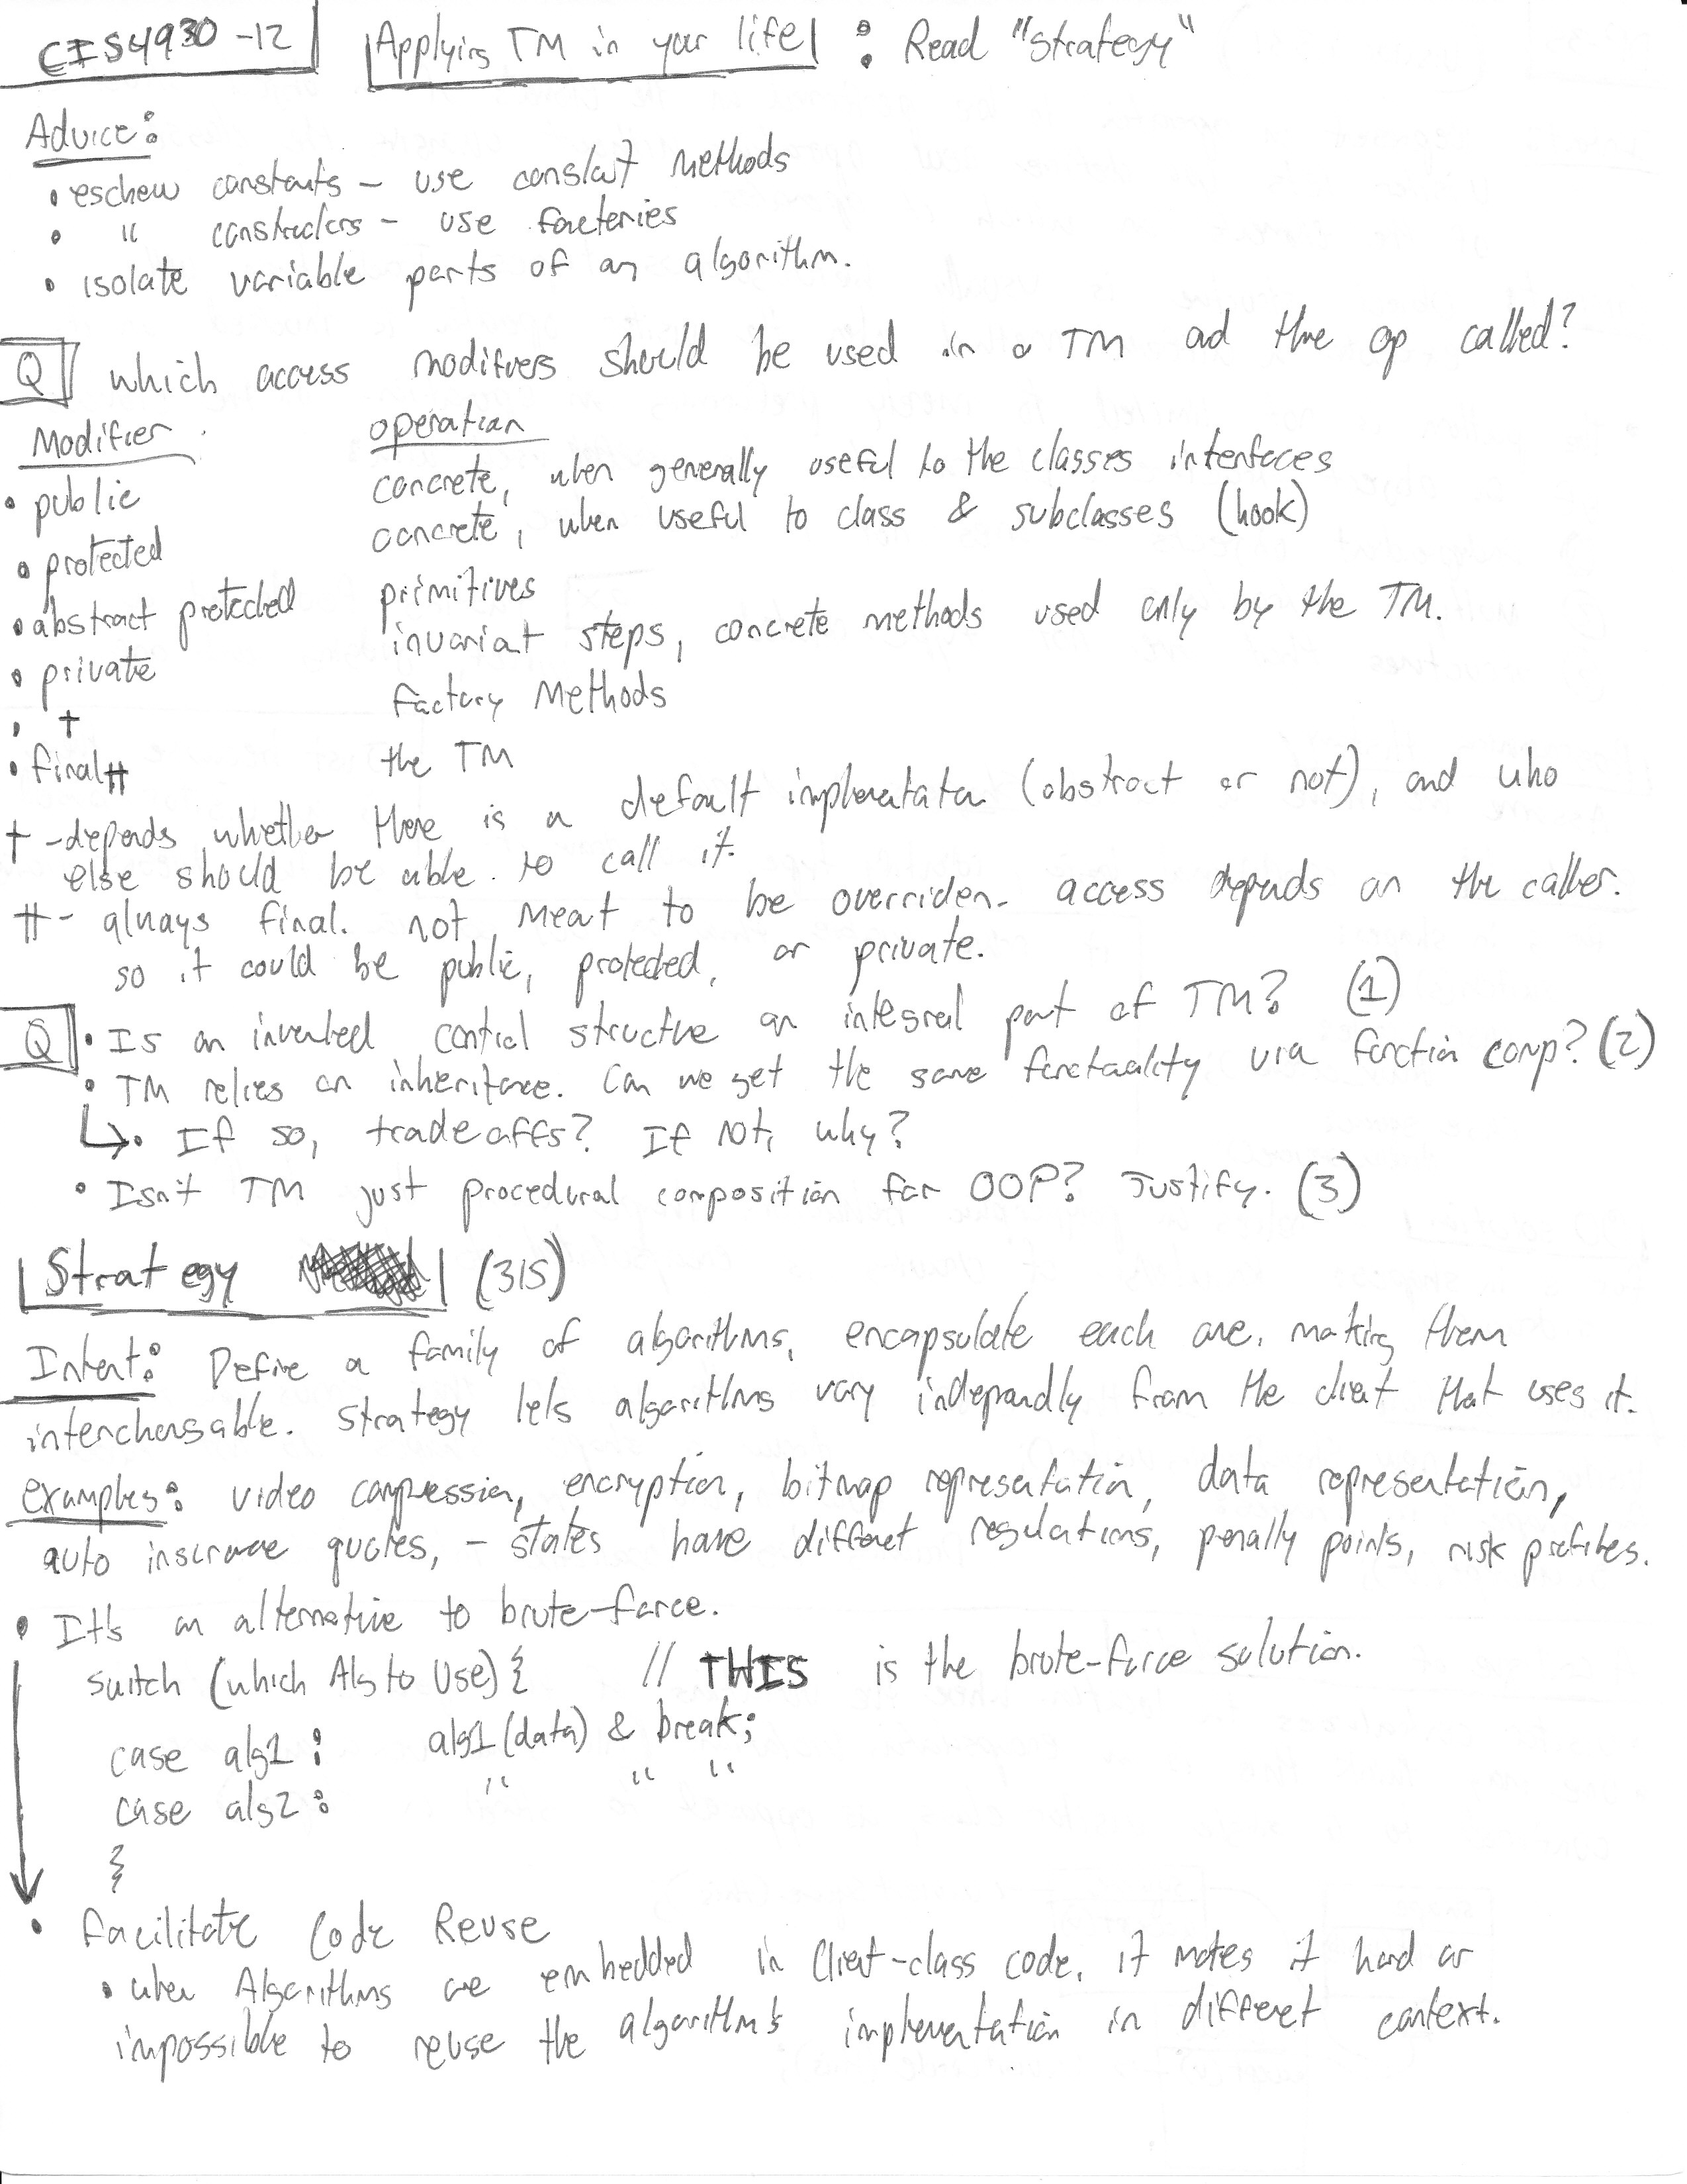 CIS4930-12 Applying TM in your life : Read "Strategy"
Advice:
• eschew constants - use constant methods
• " constructors - use factories
• isolate variable parts of an algorithm.
Q which access modifiers should be used in a TM and the op called?
Modifier operation
• public concrete, when generally useful to the classes interfaces
• protected concrete, when useful to class & subclasses (hook)
• abstract protected primitives
• private invariant steps, concrete methods used only by the TM.
• † factory Methods
• final‡ the TM
† - depends whether there is a default implementation (abstract or not), and who
else should be able to call it.
‡ - always final. not meant to be overriden. access depends on the caller.
so it could be public, protected, or private.
Q • Is an inverted control structure an integral part of TM? (1)
• TM relies on inheritance. Can we get the same functionality via function comp? (2)
↳ • If so, tradeoffs? If not, why?
• Isn't TM just procedural composition for OOP? Justify. (3)
Strategy (315)
Intent: Define a family of algorithms, encapsulate each one, making them
interchangable. Strategy lets algorithms vary independly from the client that uses it.
examples: video compression, encryption, bitmap representation, data representation,
auto insurance quotes, - states have different regulations, penally points, risk profiles.
• It's an alternative to brute-force.
switch (which Alg to Use) { // THIS is the brute-force solution.
case alg1 : alg1(data) & break;
case alg2 : " " "
}
• Facilitate Code Reuse
• when Algorithms are embedded in Client-class code, it makes it hard or
impossible to reuse the algorithm's implementation in different context.